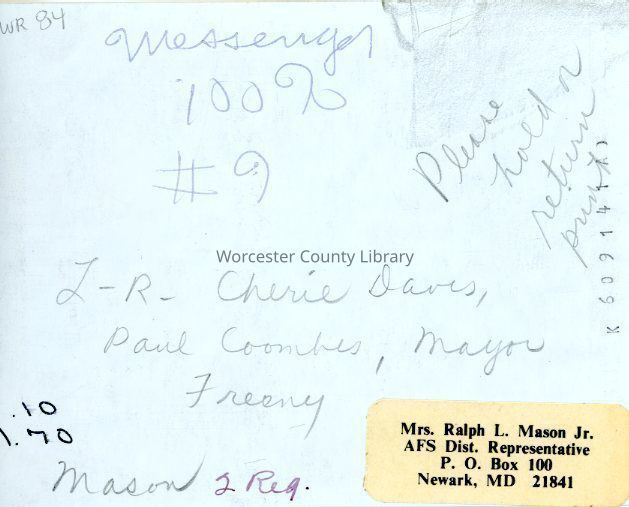 WR 84
Messenger
100%
#9
Please
hold or
return
print
Worcester County Library
L-R- Cherie Davis,
Paul Coombes, Mayor
Freeny
.10
1.70
Mason 2 Reg.
Mrs. Ralph L. Mason Jr.
AFS Dist. Representative
P. O. Box 100
Newark, MD 21841